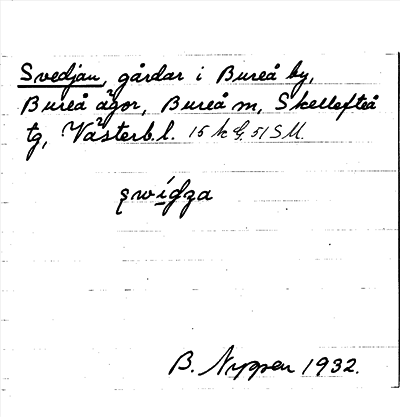 Svedjan, gårdar i Bureå by,
Bureå ägor, Bureå m, Skellefteå
tg, Västerb.l. 15 51 SU.
B. Nyppen 1932.